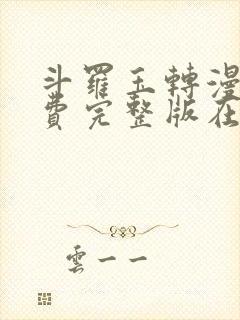 斗羅玉轉漫
費完整版在
雲一一